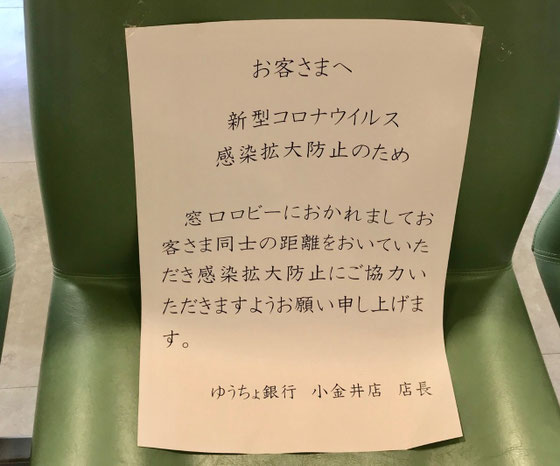 お客さまへ
新型コロナウイルス
感染拡大防止のため
窓口ロビーにおかれましてお
客さま同士の距離をおいていた
だき感染拡大防止にご協力い
ただきますようお願い申し上げま
す。
ゆうちょ銀行　小金井店　店長